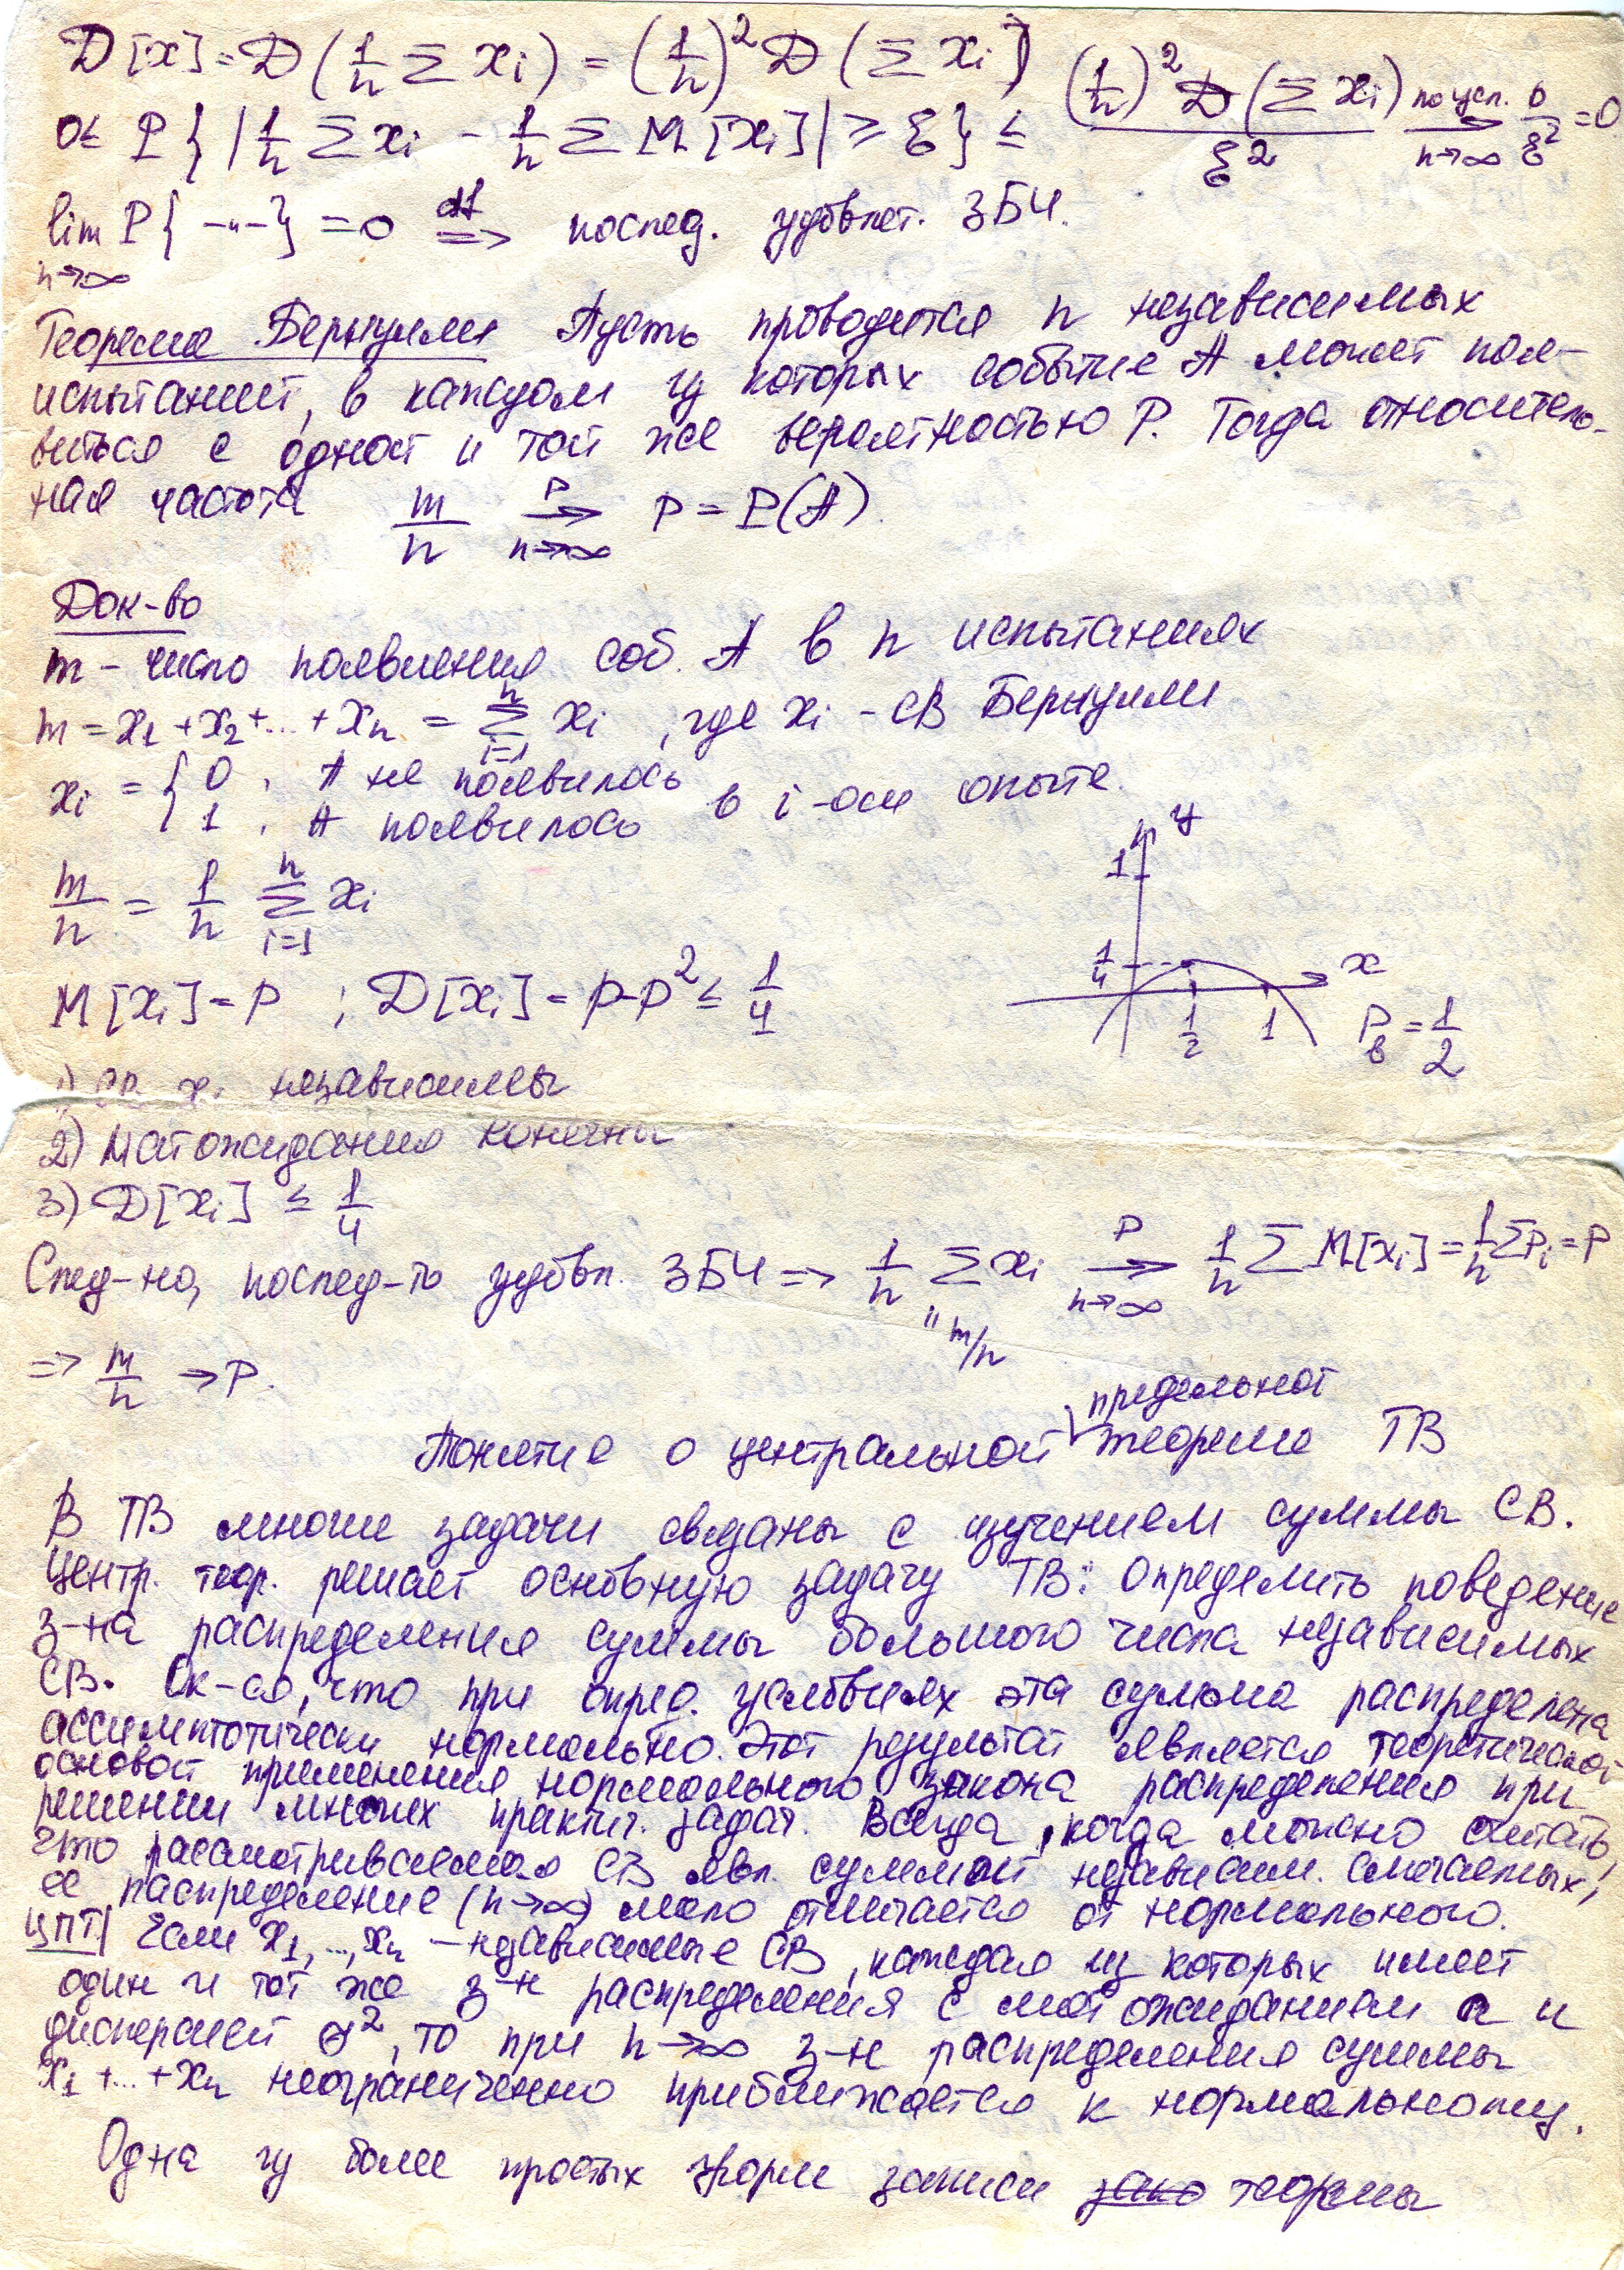 D[x] = D(1/n Σ xi) = (1/n)² D(Σ xi)
0 ≤ P{|1/n Σ xi − 1/n Σ M[xi]| ≥ ξ} ≤ (1/n)² D(Σ xi) / ξ² по усл. → n→∞ 0/ξ² = 0
lim n→∞ P{ –"– } = 0 df ⇒ послед. удовлет. ЗБЧ.
Теорема Бернулли Пусть проводится n независимых
испытаний, в каждом из которых событие A может поя-
виться с одной и той же вероятностью P. Тогда относитель-
ная частота m/n P → n→∞ P = P(A).
Док-во
m – число появления соб. A в n испытаниях
m = x1 + x2 + ... + xn = Σ i=1 n xi, где xi – СВ Бернулли
xi = { 0, A не появилось
1, A появилось в i-ом опыте.
m/n = 1/n Σ i=1 n xi
y
1
1/4
x
1/2
1
M[xi] = P ; D[xi] = p-p² ≤ 1/4
Pв = 1/2
1) СВ xi независимы
2) Мат ожидания конечны
3) D[xi] ≤ 1/4
След-но, послед-ть удовл. ЗБЧ => 1/n Σ xi P → n→∞ 1/n Σ M[xi] = 1/n Σ Pi = P
" m/n
=> m/n → P.
предельной
Понятие о центральной теореме ТВ
В ТВ многие задачи связаны с изучением суммы СВ.
Центр. теор. решает основную задачу ТВ: определить поведение
з-на распределения суммы большого числа независимых
СВ. Ок-ся, что при опред. условиях эта сумма распределена
ассимптотически нормально. Этот результат является теоретической
основой применения нормального закона распределения при
решении многих практич. задач. Всегда, когда можно считать,
что рассматриваемая СВ явл. суммой независим. слагаемых,
ее распределение (n→∞) мало отличается от нормального.
ЦПТ| Если x1, ..., xn – независимые СВ, каждая из которых имеет
один и тот же з-н распределения с мат ожиданием a и
дисперсией σ², то при n→∞ з-н распределения суммы
x1 + ... + xn неограниченно приближается к нормальному.
Одна из более простых форм записи зако теоремы